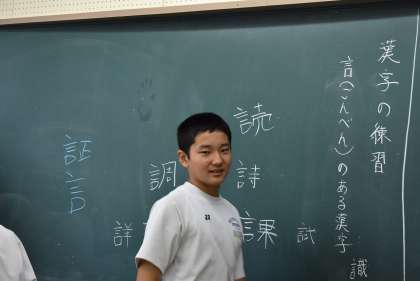 漢字の練習
言(ごんべん)のある漢字
識
試
読
詩
課
調
詳
証
言